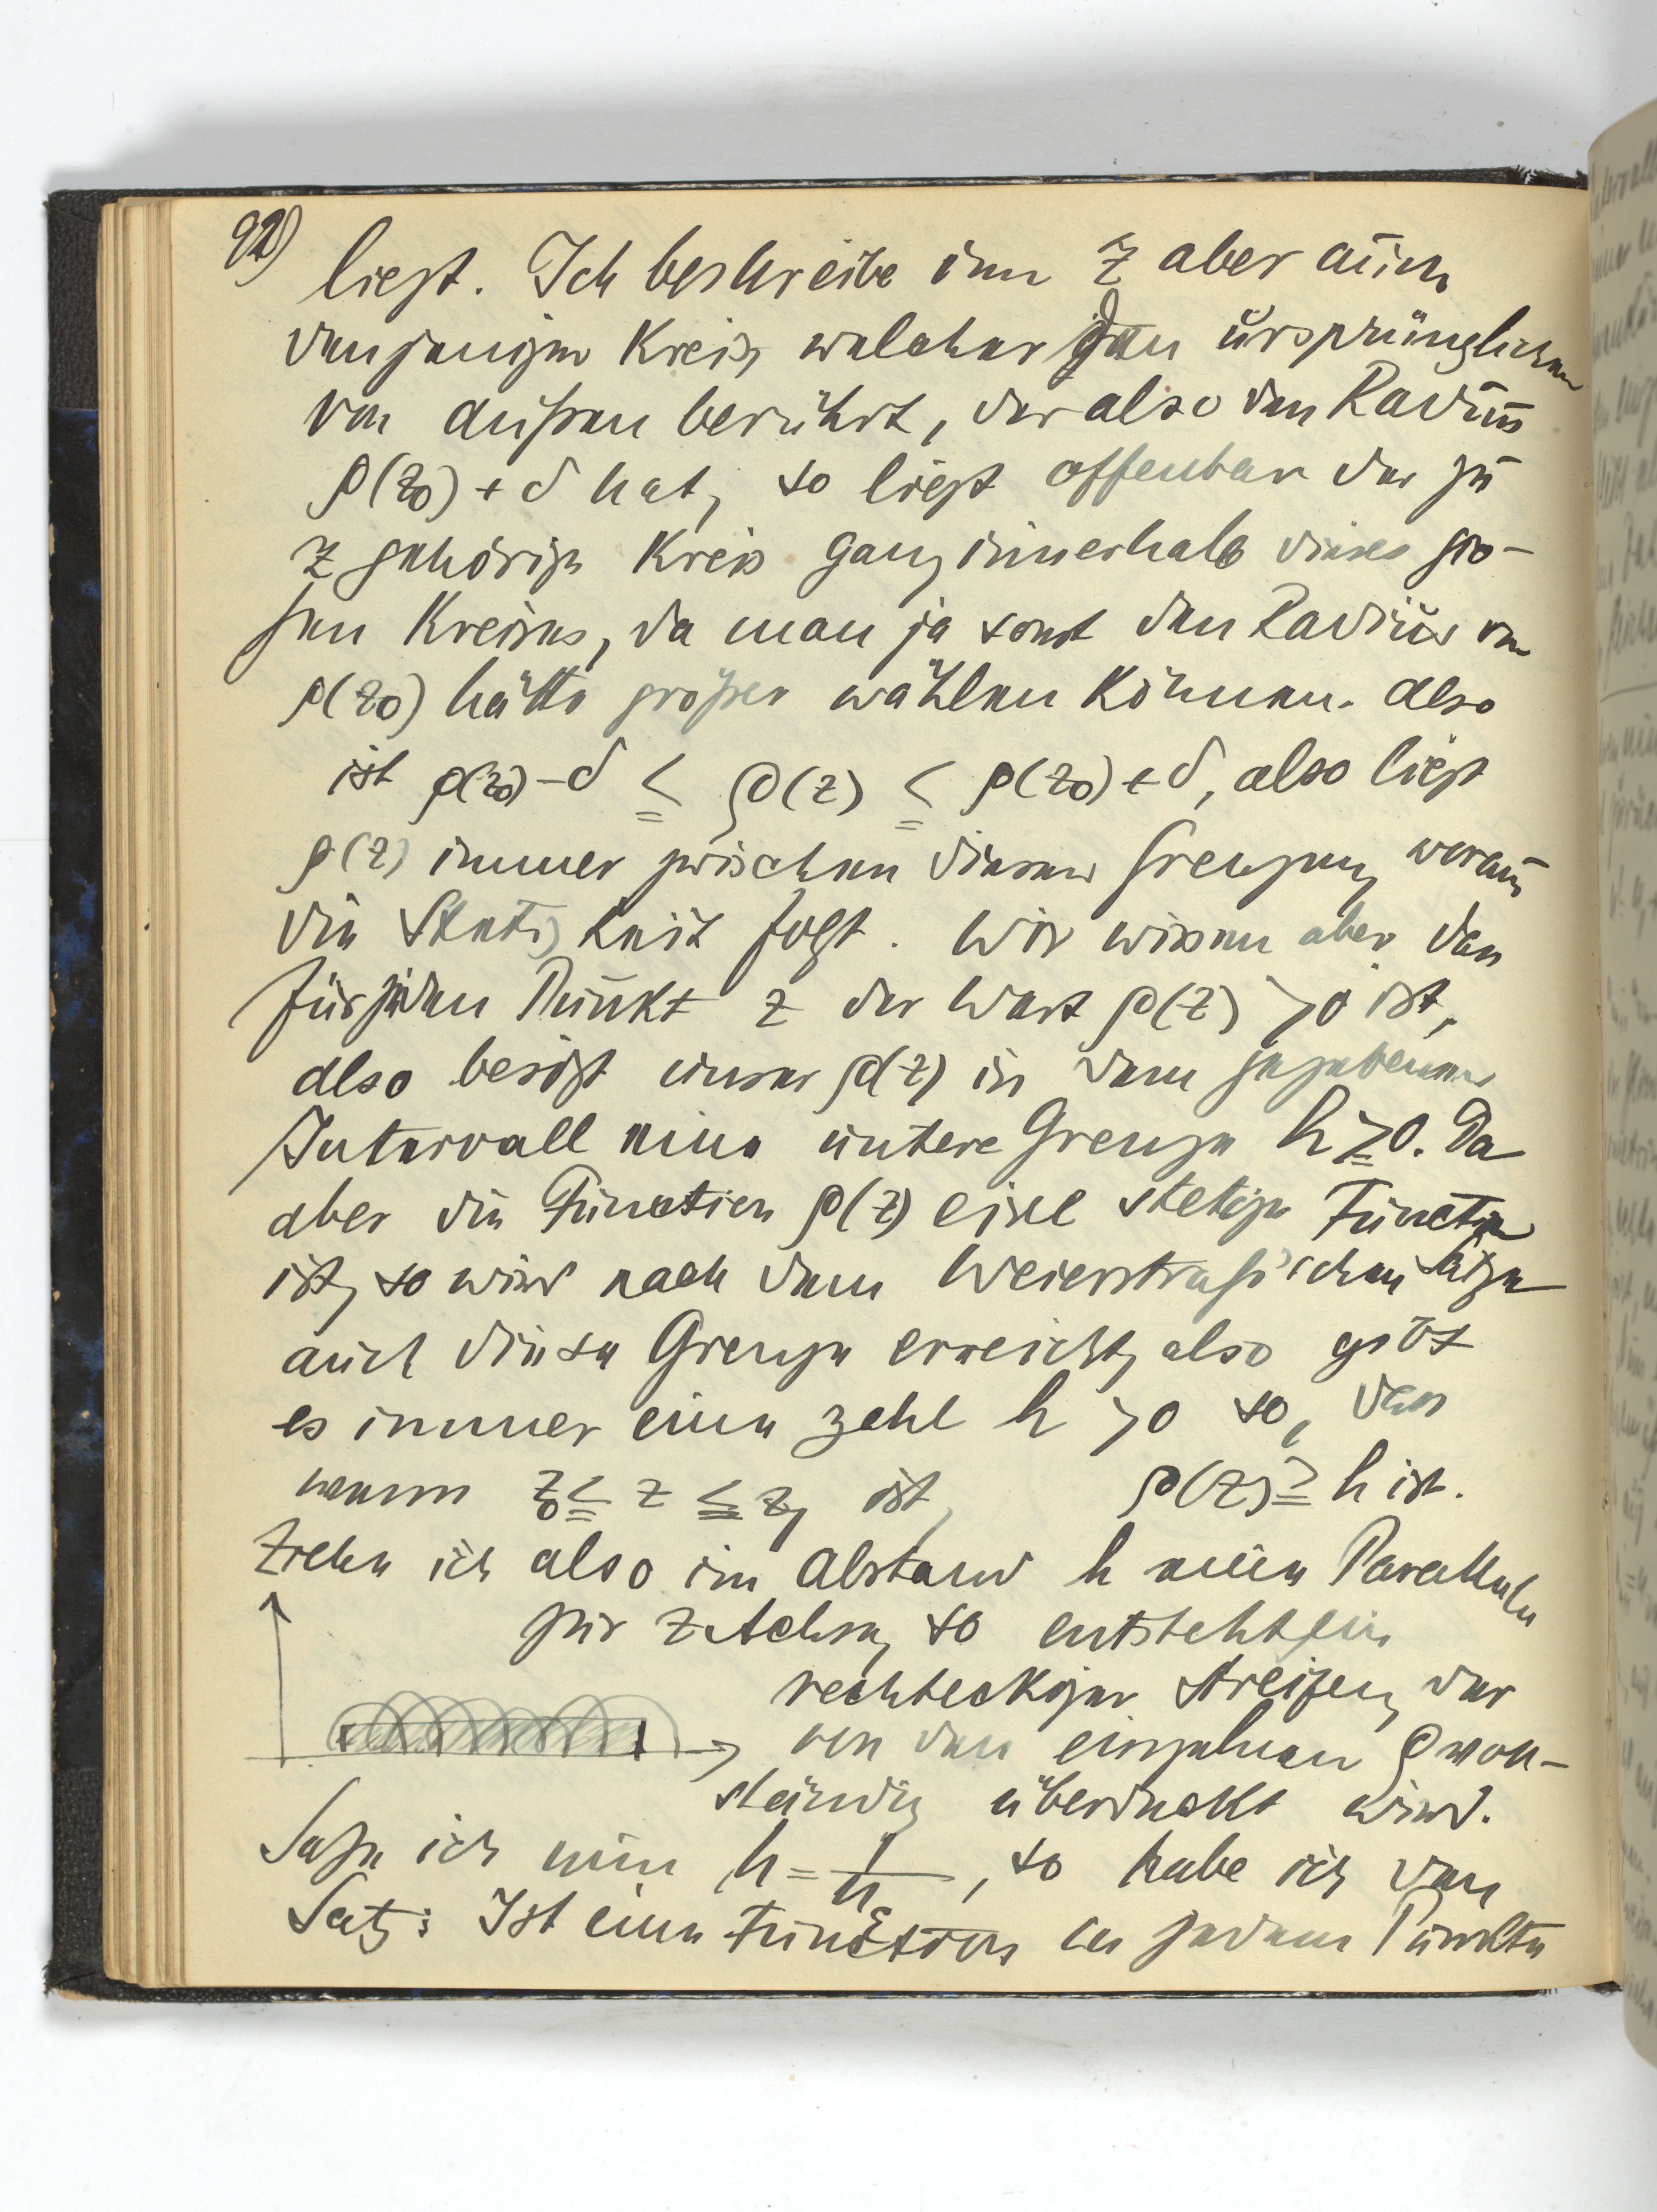 92)
liegt. Ich beschreibe um z aber auch
denjenigen Kreis, welcher den ursprünglichen
von außen berührt, der also den Radius
ρ(z₀) + δ hat, so liegt offenbar der zu
z gehörige Kreis ganz innerhalb dieses gro-
ßen Kreises, da man ja sonst den Radius von
ρ(z₀) hätte größer wählen können. Also
ist ρ(z₀) - δ ≦ ρ(z) ≦ ρ(z₀) + δ, also liegt
ρ(z) immer zwischen diesen Grenzen, woraus
die Stetigkeit folgt. Wir wissen aber dass
für jeden Punkt z der Wert ρ(z) > 0 ist,
also besitzt unser ρ(z) in dem gegebenen
Intervall eine untere Grenze h ≧ 0. Da
aber die Function ρ(z) eine stetige Function
ist, so wird nach dem Weierstraß'schen Satze
auch diese Grenze erreicht, also gibt
es immer eine Zahl h > 0 so, dass
wenn z₀ ≦ z ≦ z₁ ist, ρ(z) ≧ h ist.
Ziehe ich also im Abstand h eine Parallele
zur z-Achse, so entsteht ein
rechteckiger Streifen, der
von den einzelnen ρ voll-
ständig überdeckt wird.
Setze ich nun h = 1/n, so habe ich den
Satz: Ist eine Function in jedem Punkte